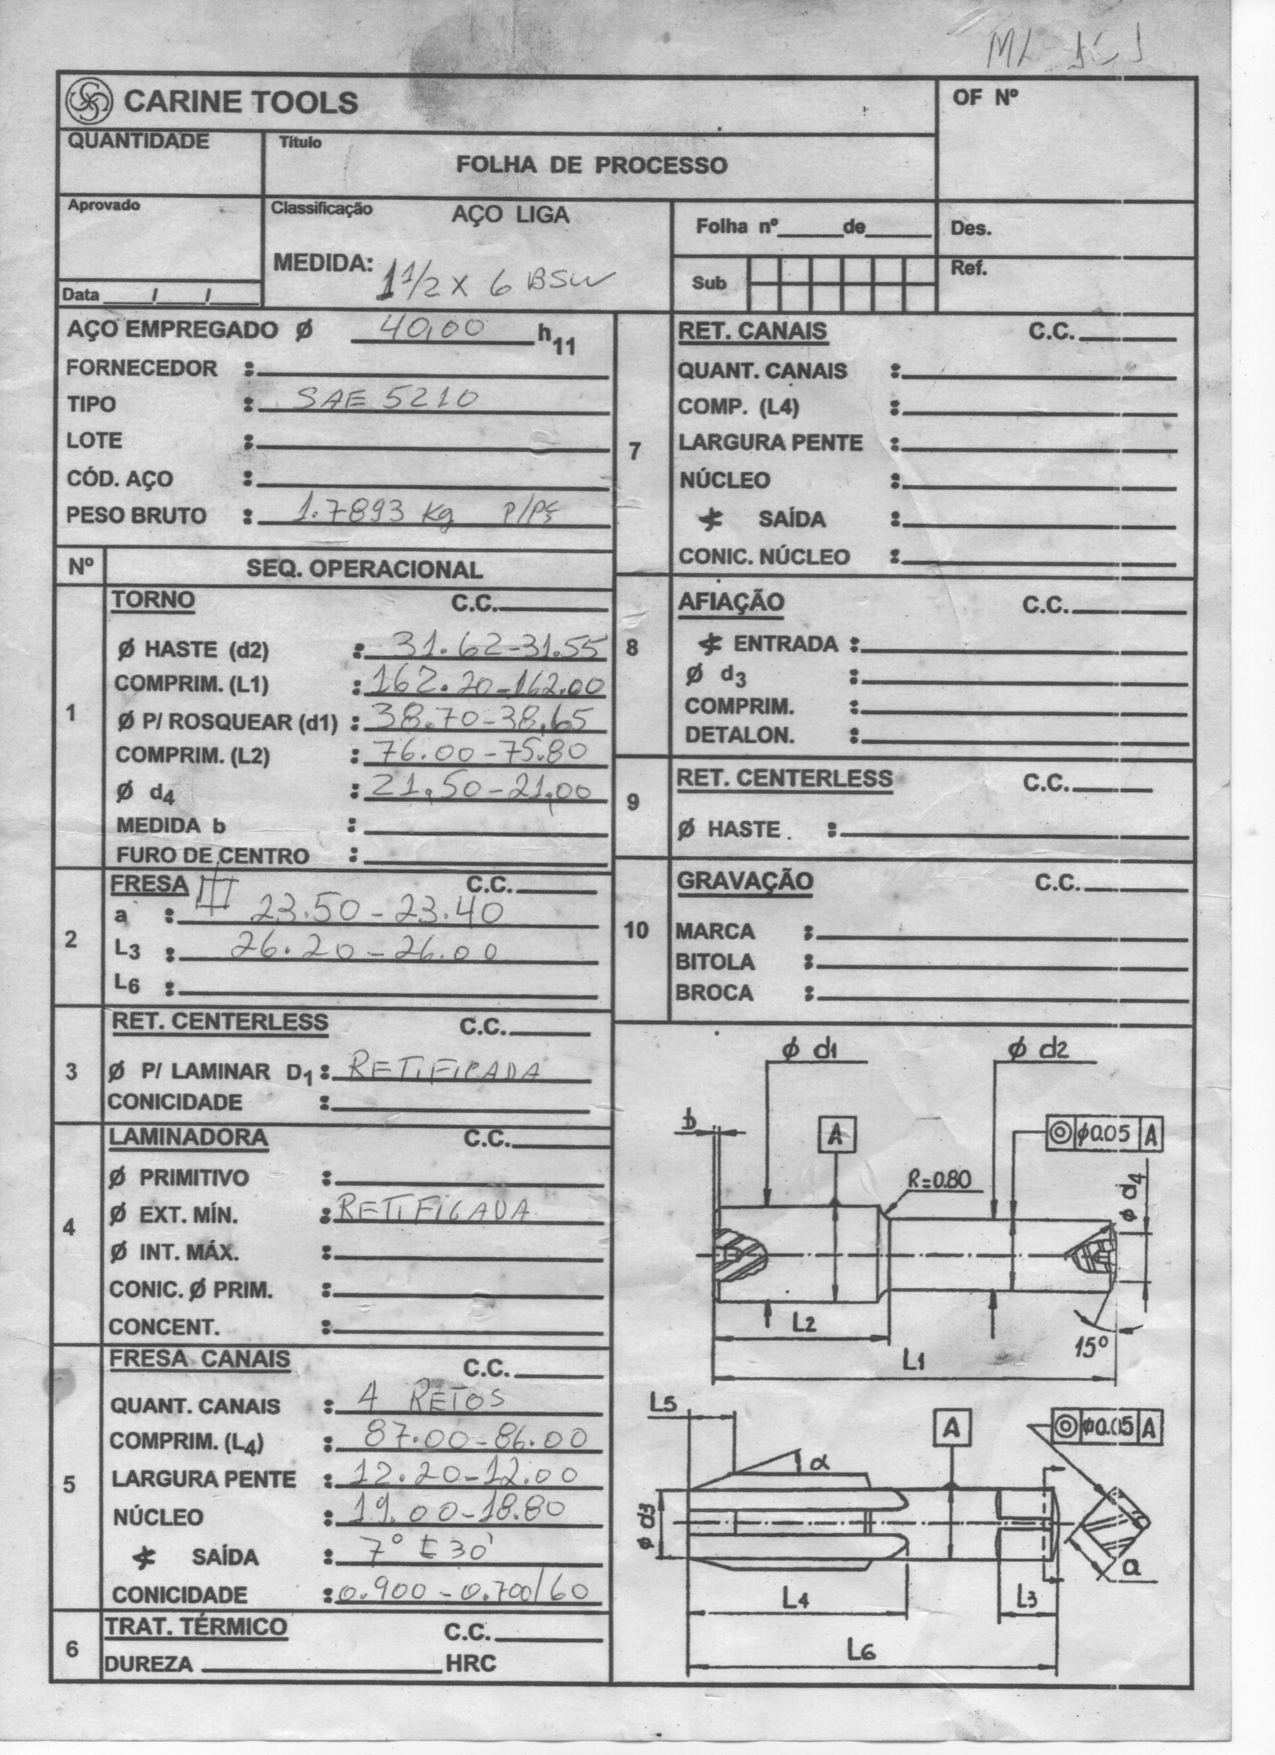 CARINE TOOLS
OF Nº
QUANTIDADE
Título
FOLHA DE PROCESSO
Aprovado
Data ___/___/___
Classificação AÇO LIGA
MEDIDA: 1 1/2 X 6 BSW
Folha nº______de______
Des.
Sub
Ref.
AÇO EMPREGADO Ø 40,00 h11
FORNECEDOR :
TIPO : SAE 5210
LOTE :
CÓD. AÇO :
PESO BRUTO : 1.7893 Kg P/Pç
Nº SEQ. OPERACIONAL
1
TORNO C.C.
Ø HASTE (d2) : 31.62-31.55
COMPRIM. (L1) : 162.20-162.00
Ø P/ ROSQUEAR (d1) : 38.70-38,65
COMPRIM. (L2) : 76.00-75.80
Ø d4 : 21,50-21,00
MEDIDA b :
FURO DE CENTRO :
2
FRESA C.C.
a : 23.50-23.40
L3 : 26.20-26.00
L6 :
3
RET. CENTERLESS C.C.
Ø P/ LAMINAR D1 : RETIFICADA
CONICIDADE :
4
LAMINADORA C.C.
Ø PRIMITIVO :
Ø EXT. MÍN. : RETIFICADA
Ø INT. MÁX. :
CONIC. Ø PRIM. :
CONCENT. :
5
FRESA CANAIS C.C.
QUANT. CANAIS : 4 RETOS
COMPRIM. (L4) : 87.00-86.00
LARGURA PENTE : 12.20-12.00
NÚCLEO : 19.00-18.80
∢ SAÍDA : 7° ± 30'
CONICIDADE : 0.900-0.700/60
6
TRAT. TÉRMICO C.C.
DUREZA HRC
7
RET. CANAIS C.C.
QUANT. CANAIS :
COMP. (L4) :
LARGURA PENTE :
NÚCLEO :
∢ SAÍDA :
CONIC. NÚCLEO :
8
AFIAÇÃO C.C.
∢ ENTRADA :
Ø d3 :
COMPRIM. :
DETALON. :
9
RET. CENTERLESS C.C.
Ø HASTE . :
10
GRAVAÇÃO C.C.
MARCA :
BITOLA :
BROCA :
Ø d1 Ø d2
b A ◎ Ø0.05 A
R=0.80
Ø d4
L2
15°
L1
L5 A ◎ Ø0.05 A
α
Ø d3
a
L4 L3
L6